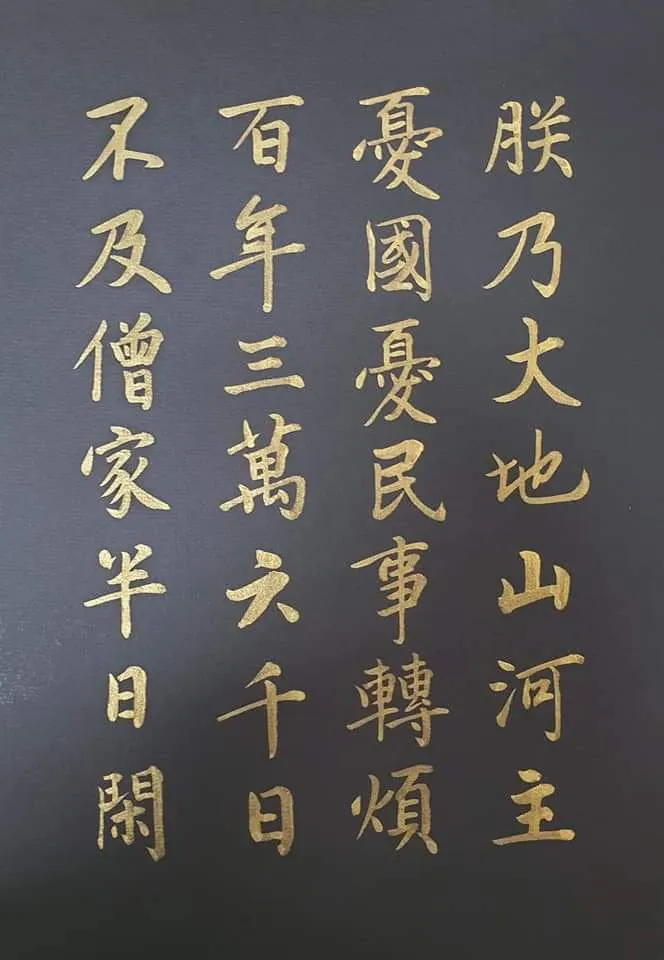 朕乃大地山河主
憂國憂民事轉煩
百年三萬六千日
不及僧家半日閑